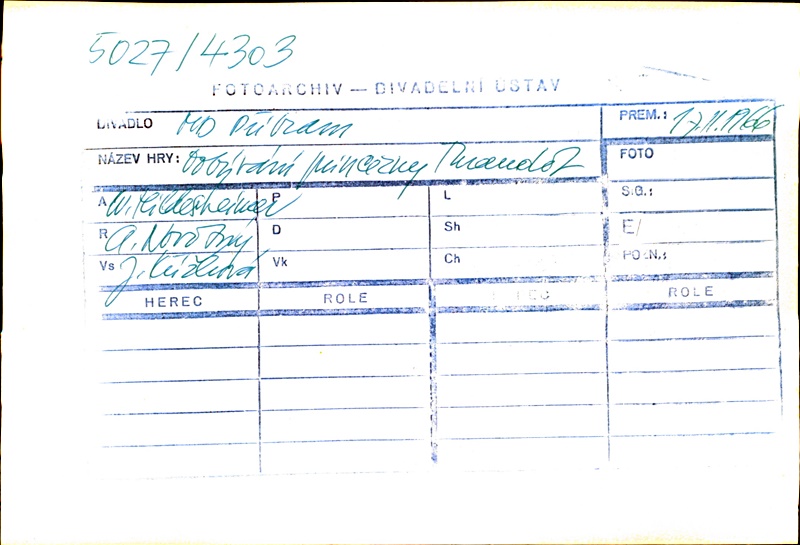 5027/4303
FOTOARCHIV — DIVADELNÍ ÚSTAV
DIVADLO MD Příbram PREM.: 17.11.1966
NÁZEV HRY: Dobývání princezny Turandot FOTO
A W. Hildesheimer P L SG.:
R A. Novotný D Sh E/
Vs J. Vk Ch POZN.:
HEREC ROLE HEREC ROLE